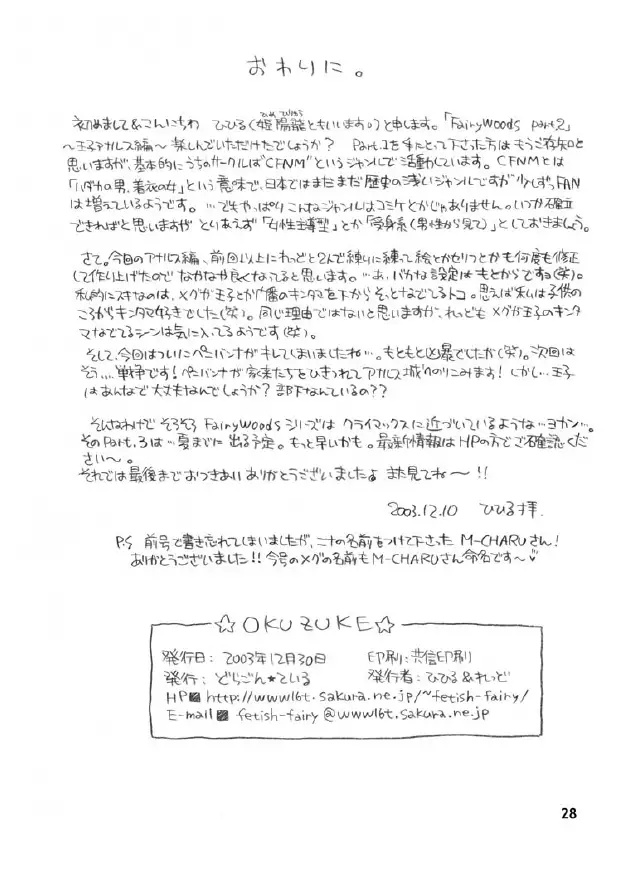 おわりに。
初めまして&こんにちわ ひひる(姫陽龍ともいいます。)と申します。「FairyWoods part.2」
〜王子アカルス編〜 楽しんでいただけたでしょうか? Part.1を手にとって下さった方はもうご存知と
思いますが、基本的にうちのサークルは"CFNM"というジャンルで活動しています。CFNMとは
「ハダカの男、着衣の女」という意味で、日本ではまだまだ歴史の浅いジャンルですが少しずつFAN
は増えているようです。…でもやっぱりこんなジャンルはコミケとかじゃありません。いつか確立
できればと思いますが とりあえず「女性主導型」とか「受身系(男性から見て)」としておきましょう。
さて。今回のアカルス編、前回以上にれっどと2人で練りに練って絵とかセリフとかも何度も修正
して作り上げたので なかなか良くなってると思います。…あ、バカな設定はもとからですね(笑)。
私的にスキなのは、メグが王子とか門番のキンタマを下からそっとなでてるトコ。思えば私は子供の
ころからキンタマ好きでした(笑)。同じ理由ではないと思いますが、れっども メグが王子のキンタ
マなでてるシーンは気に入ってるようです(笑)。
そして、今回はついにペニバンナがキレてしまいましたね…。もともと凶暴でしたか(笑)。次回は
そう…戦争です!ペニバンナが家来たちをひきつれてアカルス城へのりこみます!しかし…王子
はあんなで大丈夫なんでしょうか?部下なんているの??
そんなわけで そろそろ FairyWoodsシリーズは クライマックスに近づいているような…ヨカン…。
そのPart.3は…夏までに出る予定。もっと早いかも。最新情報はHPの方でご確認くだ
さい〜。
それでは最後までおつきあい ありがとうございましたょ また見てね〜!!
2003.12.10 ひひる拝.
P.S 前号で書き忘れてしまいましたが、ニナの名前をつけて下さった M-CHARUさん!
ありがとうございました!!今号のメグの名前も M-CHARUさん命名です〜♡
☆OKUZUKE☆
発行日: 2003年12月30日 印刷:共信印刷
発行: どらごん★ている 発行者:ひひる&れっど
HP http://www16t.sakura.ne.jp/~fetish-fairy/
E-mail fetish-fairy@www16t.sakura.ne.jp
28